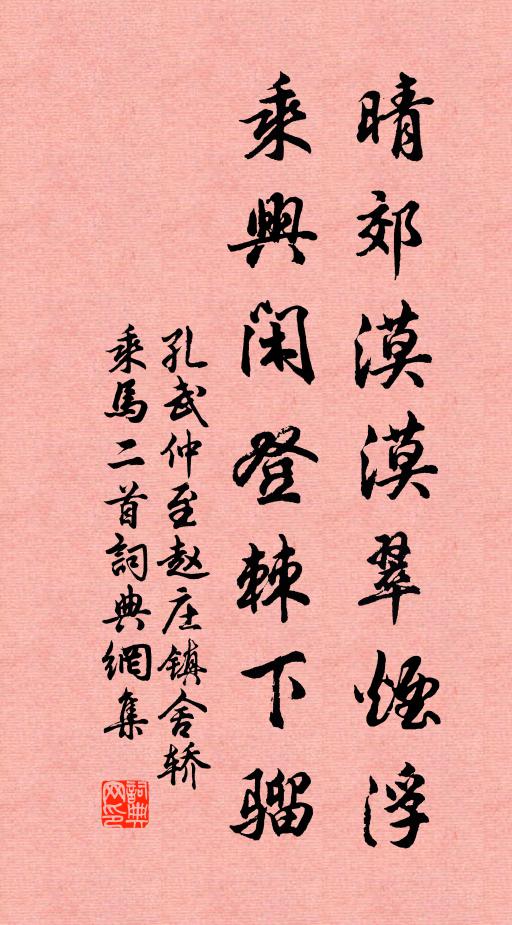 晴郊漠漠翠煙浮
乘興閑登棘下騮
孔武仲至赵庄镇舍轿
乘馬二首詞典網集
詞典网印